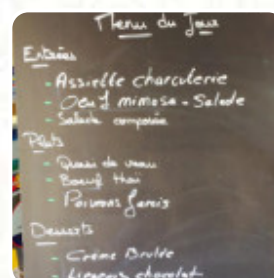 Menu du Jour
Entrées
- Assiette charcuterie
- Oeuf mimosa - Salade
- Salade composée
Plats
- Quasi de veau
- Boeuf thaï
- Poivrons farcis
Desserts
- Crème Brulée
- chocolat